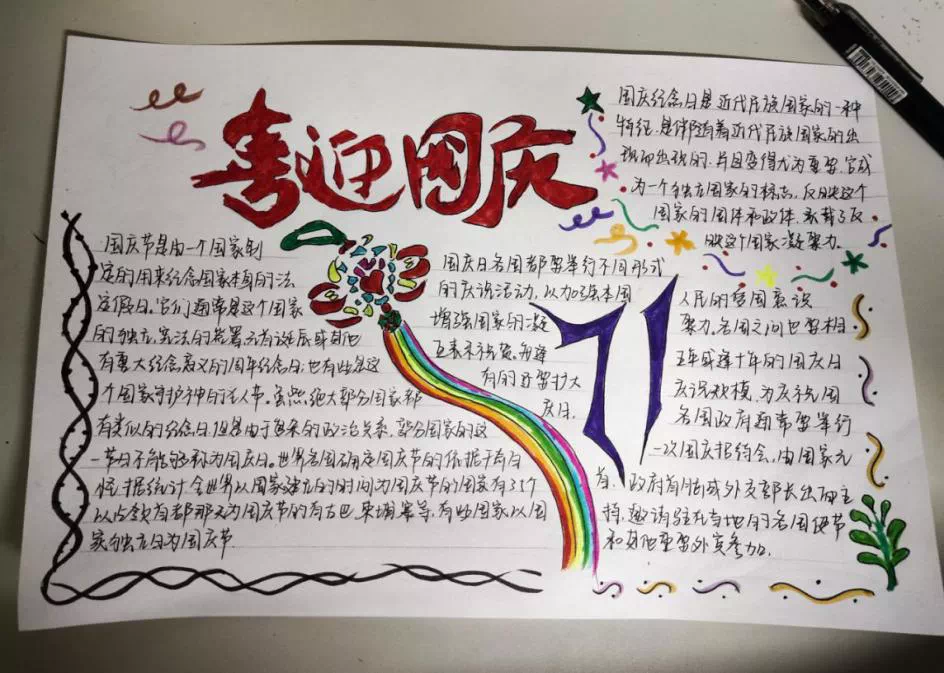 喜迎国庆
国庆纪念日是近代民族国家的一种
特征,是伴随着近代民族国家的出
现而出现的,并且变得尤为重要,它成
为一个独立国家的标志,反映这个
国家的国体和政体,承载了反
映这个国家凝聚力.
国庆节是由一个国家制
定的用来纪念国家本身的法
定假日。它们通常是这个国家
的独立、宪法的签署、元首诞辰或其他
有重大纪念意义的周年纪念日;也有些是这
个国家守护神的圣人节。虽然绝大部分国家都
有类似的纪念日,但是由于复杂的政治关系,部分国家的这
一节日不能够称为国庆日。世界各国确定国庆节的依据千奇百
怪,据统计全世界以国家建立的时间为国庆节的国家有35个
以占领首都那天为国庆节的有古巴 柬埔寨等,有些国家以国
家独立日为国庆节.
国庆日各国都要举行不同形式
的庆祝活动,以加强本国
增强国家的凝
互表示祝贺。每逢
有的还要扩大
庆日.
71
人民的爱国意识
聚力。各国之间也要相
五年或逢十年的国庆日
庆祝规模,为庆祝国
各国政府通常要举行
一次国庆招待会,由国家元
首、政府首脑或外交部长出面主
持,邀请驻扎当地的各国使节
和其他重要外宾参加.